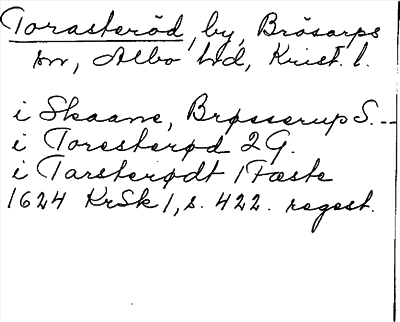 Torasteröd, by, Brösarps
sn, Albo hd, Krist. l.
i Skaane, Brøsserup S. --
i Toresterød 2 G.
i Tarsterødt 1 Fæste
1624 KrSk 1, s. 422. regest.